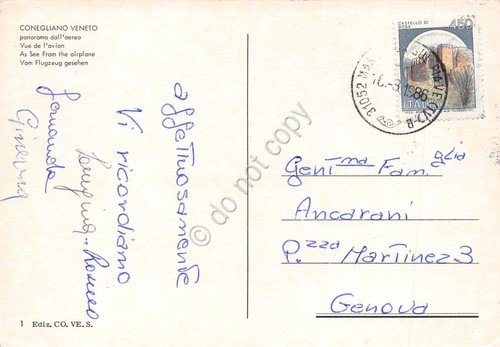 CONEGLIANO VENETO
panorama dall'aereo
Vue de l'avion
As See From the airplane
Vom Flugzeug gesehen
affettuosamente
Vi ricordiamo
Luigina - Romeo
Fernanda
Ginevra
1 Ediz. CO. VE. S.
CASTELLO DI
ROSA
450
ITALIA
31052 MA
PIAVE (TV)
10.-8.1986
Gent.ma Fam.glia
Ancarani
P.zza Martinez 3
Genova
do not copy